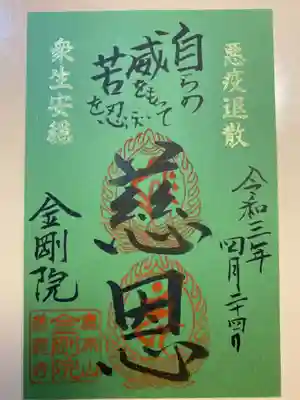 悪疫退散
自らの
威をもって
苦を忍
慈恩
衆生安穏
令和三年
四月二十四日
金剛院
金剛院